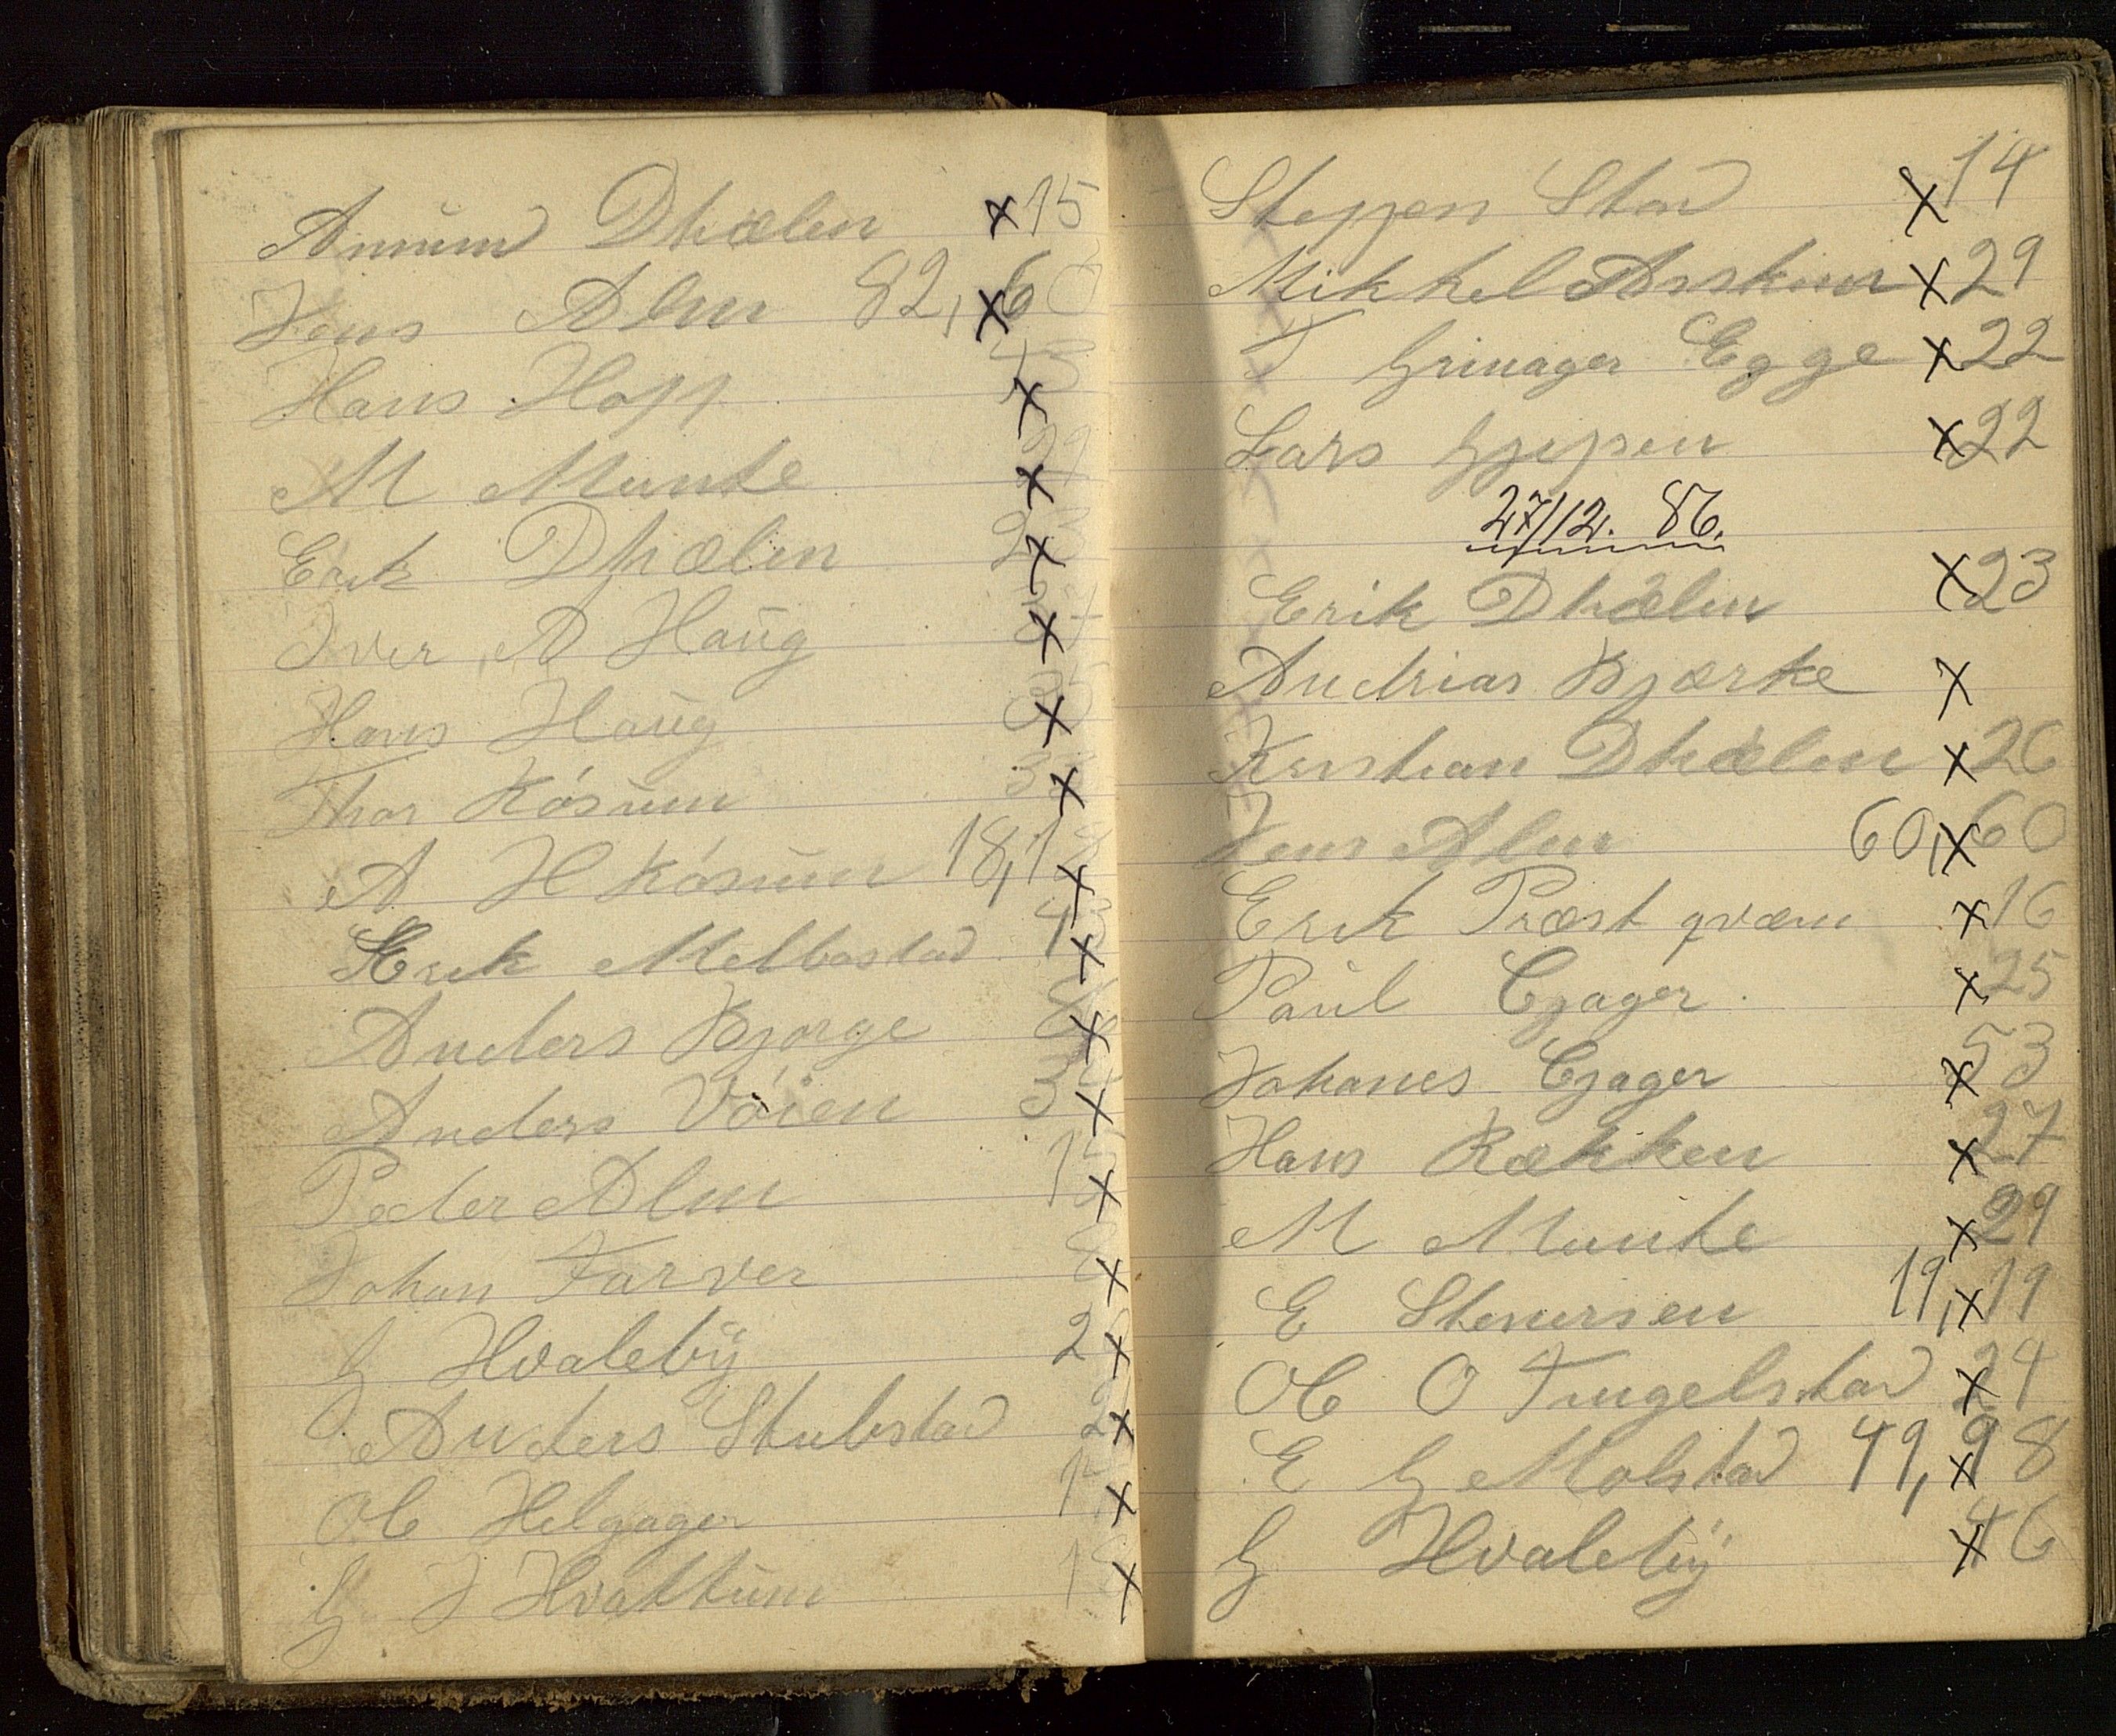 Amund Dhælen x 15
Jens Alm 82, x 60
Hans Hopp x
M Munke x 29
Erik Dhælen x 23
Iver A Haug x
Hans Haug x
Thor Kósum x
A H Kósum 18,18 x
Erik Melbostad x
Anders Bjorge x
Anders Vóien 3 x
Peder Alm x
Johan Farver x
G Hvaleby 2 x
Anders Stubstad 2 x
Ole Helgager x
G J Hvattum x
Steppen Stad x 14
Mikkel Asskim x 29
T Grinager Egge x 22
Lars Gjepsen x 22
27/12. 86.
Erik Dhælen x 23
Andrias Bjærke x
Kristian Dhælen x 26
Jens Alm 60, x 60
Erik Præst qværn x 16
Paul Egager x 25
Johanes Egager x 53
Hans Rækken x 27
M Munke x 29
E Stenersen 19, x 19
Ole O Tingelstad x 24
E G Molstad 49, x 98
G Hvaleby x 46